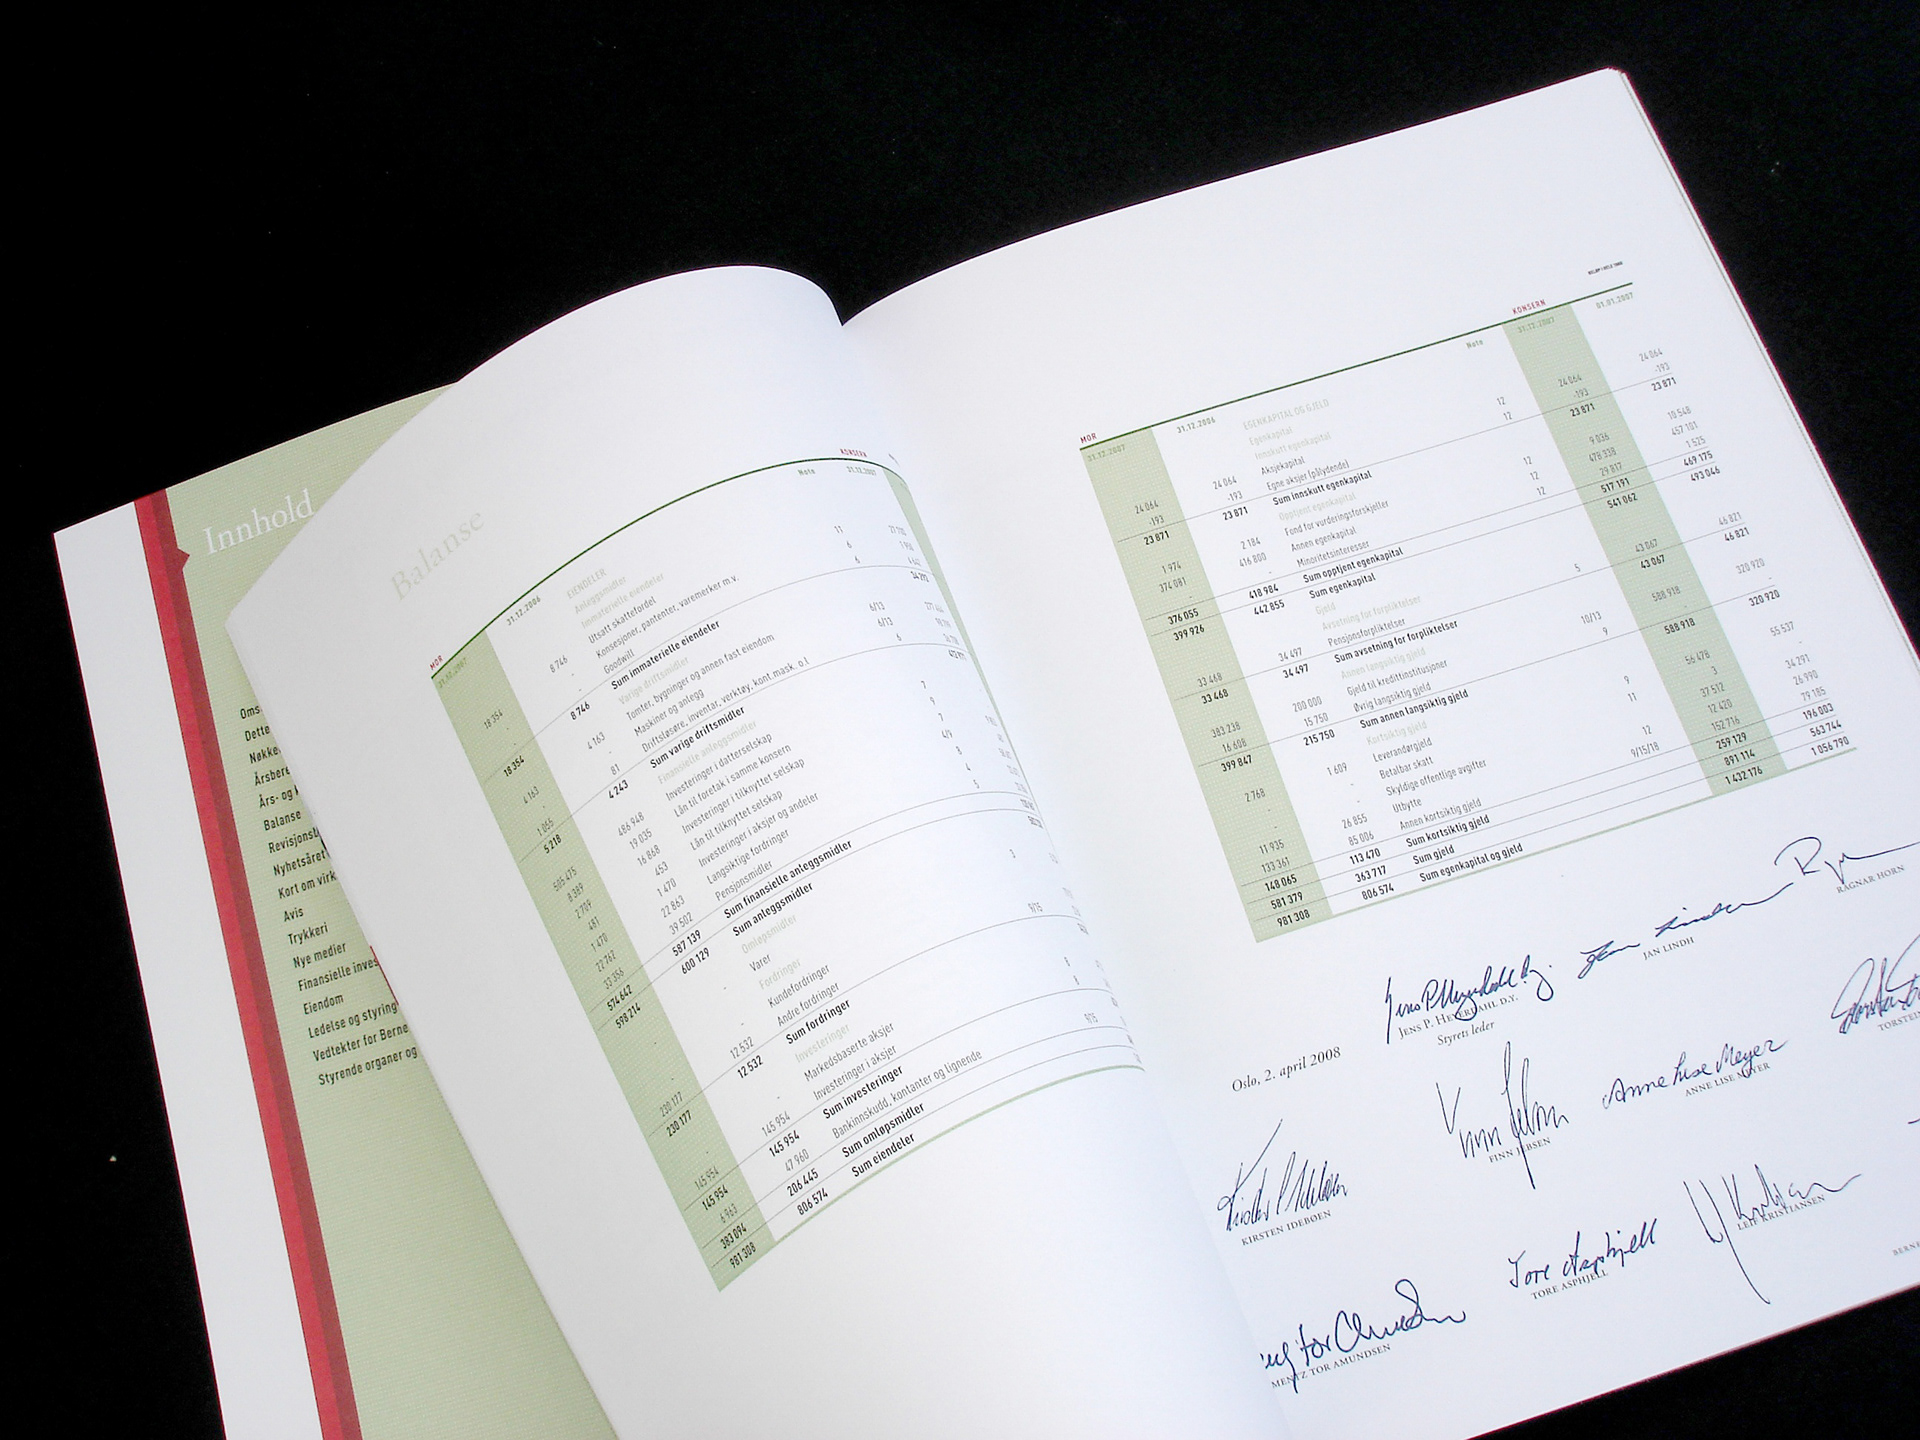 Innhold
Balanse
Revisjonsb
Nyhetsåret
Kort om virk
Avis
Trykkeri
Nye medier
Finansielle inves
Eiendom
Ledelse og styring
Vedtekter for Berne
Styrende organer og
Balanse
MOR
KONSERN
31.12.2007
31.12.2006
Note
31.12.2007
EIENDELER
Anleggsmidler
Immaterielle eiendeler
18 354 8 746 Utsatt skattefordel 11
- - Konsesjoner, patenter, varemerker m.v. 6
- - Goodwill 6
18 354 8 746 Sum immaterielle eiendeler
Varige driftsmidler
4 163 4 163 Tomter, bygninger og annen fast eiendom 6/13
- - Maskiner og anlegg 6/13
1 055 81 Driftsløsøre, inventar, verktøy, kont.mask. o.l 6
5 218 4 243 Sum varige driftsmidler
Finansielle anleggsmidler
505 475 486 948 Investeringer i datterselskap 7
8 389 19 035 Lån til foretak i samme konsern 9
2 709 16 868 Investeringer i tilknyttet selskap 7
481 453 Lån til tilknyttet selskap 4/9
1 470 1 470 Investeringer i aksjer og andeler 8
22 762 22 863 Langsiktige fordringer 4
33 356 39 502 Pensjonsmidler 5
574 642 587 139 Sum finansielle anleggsmidler
598 214 600 129 Sum anleggsmidler
Omløpsmidler
- - Varer 3
Fordringer
- Kundefordringer
230 177 12 532 Andre fordringer 9/15
230 177 12 532 Sum fordringer
Investeringer
145 954 145 954 Markedsbaserte aksjer 8
- - Investeringer i aksjer 8
145 954 145 954 Sum investeringer
6 963 47 960 Bankinnskudd, kontanter og lignende 9/15
383 094 206 445 Sum omløpsmidler
981 308 806 574 Sum eiendeler
MOR
KONSERN
31.12.2007 31.12.2006 Note 31.12.2007 01.01.2007
EGENKAPITAL OG GJELD
Egenkapital
Innskutt egenkapital
24 064 24 064 Aksjekapital 12 24 064 24 064
-193 -193 Egne aksjer (pålydende) 12 -193 -193
23 871 23 871 Sum innskutt egenkapital 23 871 23 871
Opptjent egenkapital
1 974 2 184 Fond for vurderingsforskjeller 12 9 036 10 548
374 081 416 800 Annen egenkapital 12 478 338 457 101
- - Minoritetsinteresser 12 29 817 1 525
376 055 418 984 Sum opptjent egenkapital 517 191 469 175
399 926 442 855 Sum egenkapital 541 062 493 046
Gjeld
Avsetning for forpliktelser
33 468 34 497 Pensjonsforpliktelser 5 43 067 46 821
33 468 34 497 Sum avsetning for forpliktelser 43 067 46 821
Annen langsiktig gjeld
383 238 200 000 Gjeld til kredittinstitusjoner 10/13 588 918 320 920
16 608 15 750 Øvrig langsiktig gjeld 9 - -
399 847 215 750 Sum annen langsiktig gjeld 588 918 320 920
Kortsiktig gjeld
2 768 1 609 Leverandørgjeld 9 56 478 55 537
- - Betalbar skatt 11 3 -
- - Skyldige offentlige avgifter 37 512 34 291
11 935 26 855 Utbytte 12 12 420 26 990
133 361 85 006 Annen kortsiktig gjeld 9/15/18 152 716 79 185
148 065 113 470 Sum kortsiktig gjeld 259 129 196 003
581 379 363 717 Sum gjeld 891 114 563 744
981 308 806 574 Sum egenkapital og gjeld 1 432 176 1 056 790
Oslo, 2. april 2008
JENS P. HEYERDAHL D.Y.
Styrets leder
JAN LINDH
RAGNAR HORN
KIRSTEN IDEBØEN
FINN JEBSEN
Anne Lise Meyer
ANNE LISE MEYER
TORSTEIN
MENTZ TOR AMUNDSEN
Tore Asphjell
TORE ASPHJELL
LEIF KRISTIANSEN
BERNE